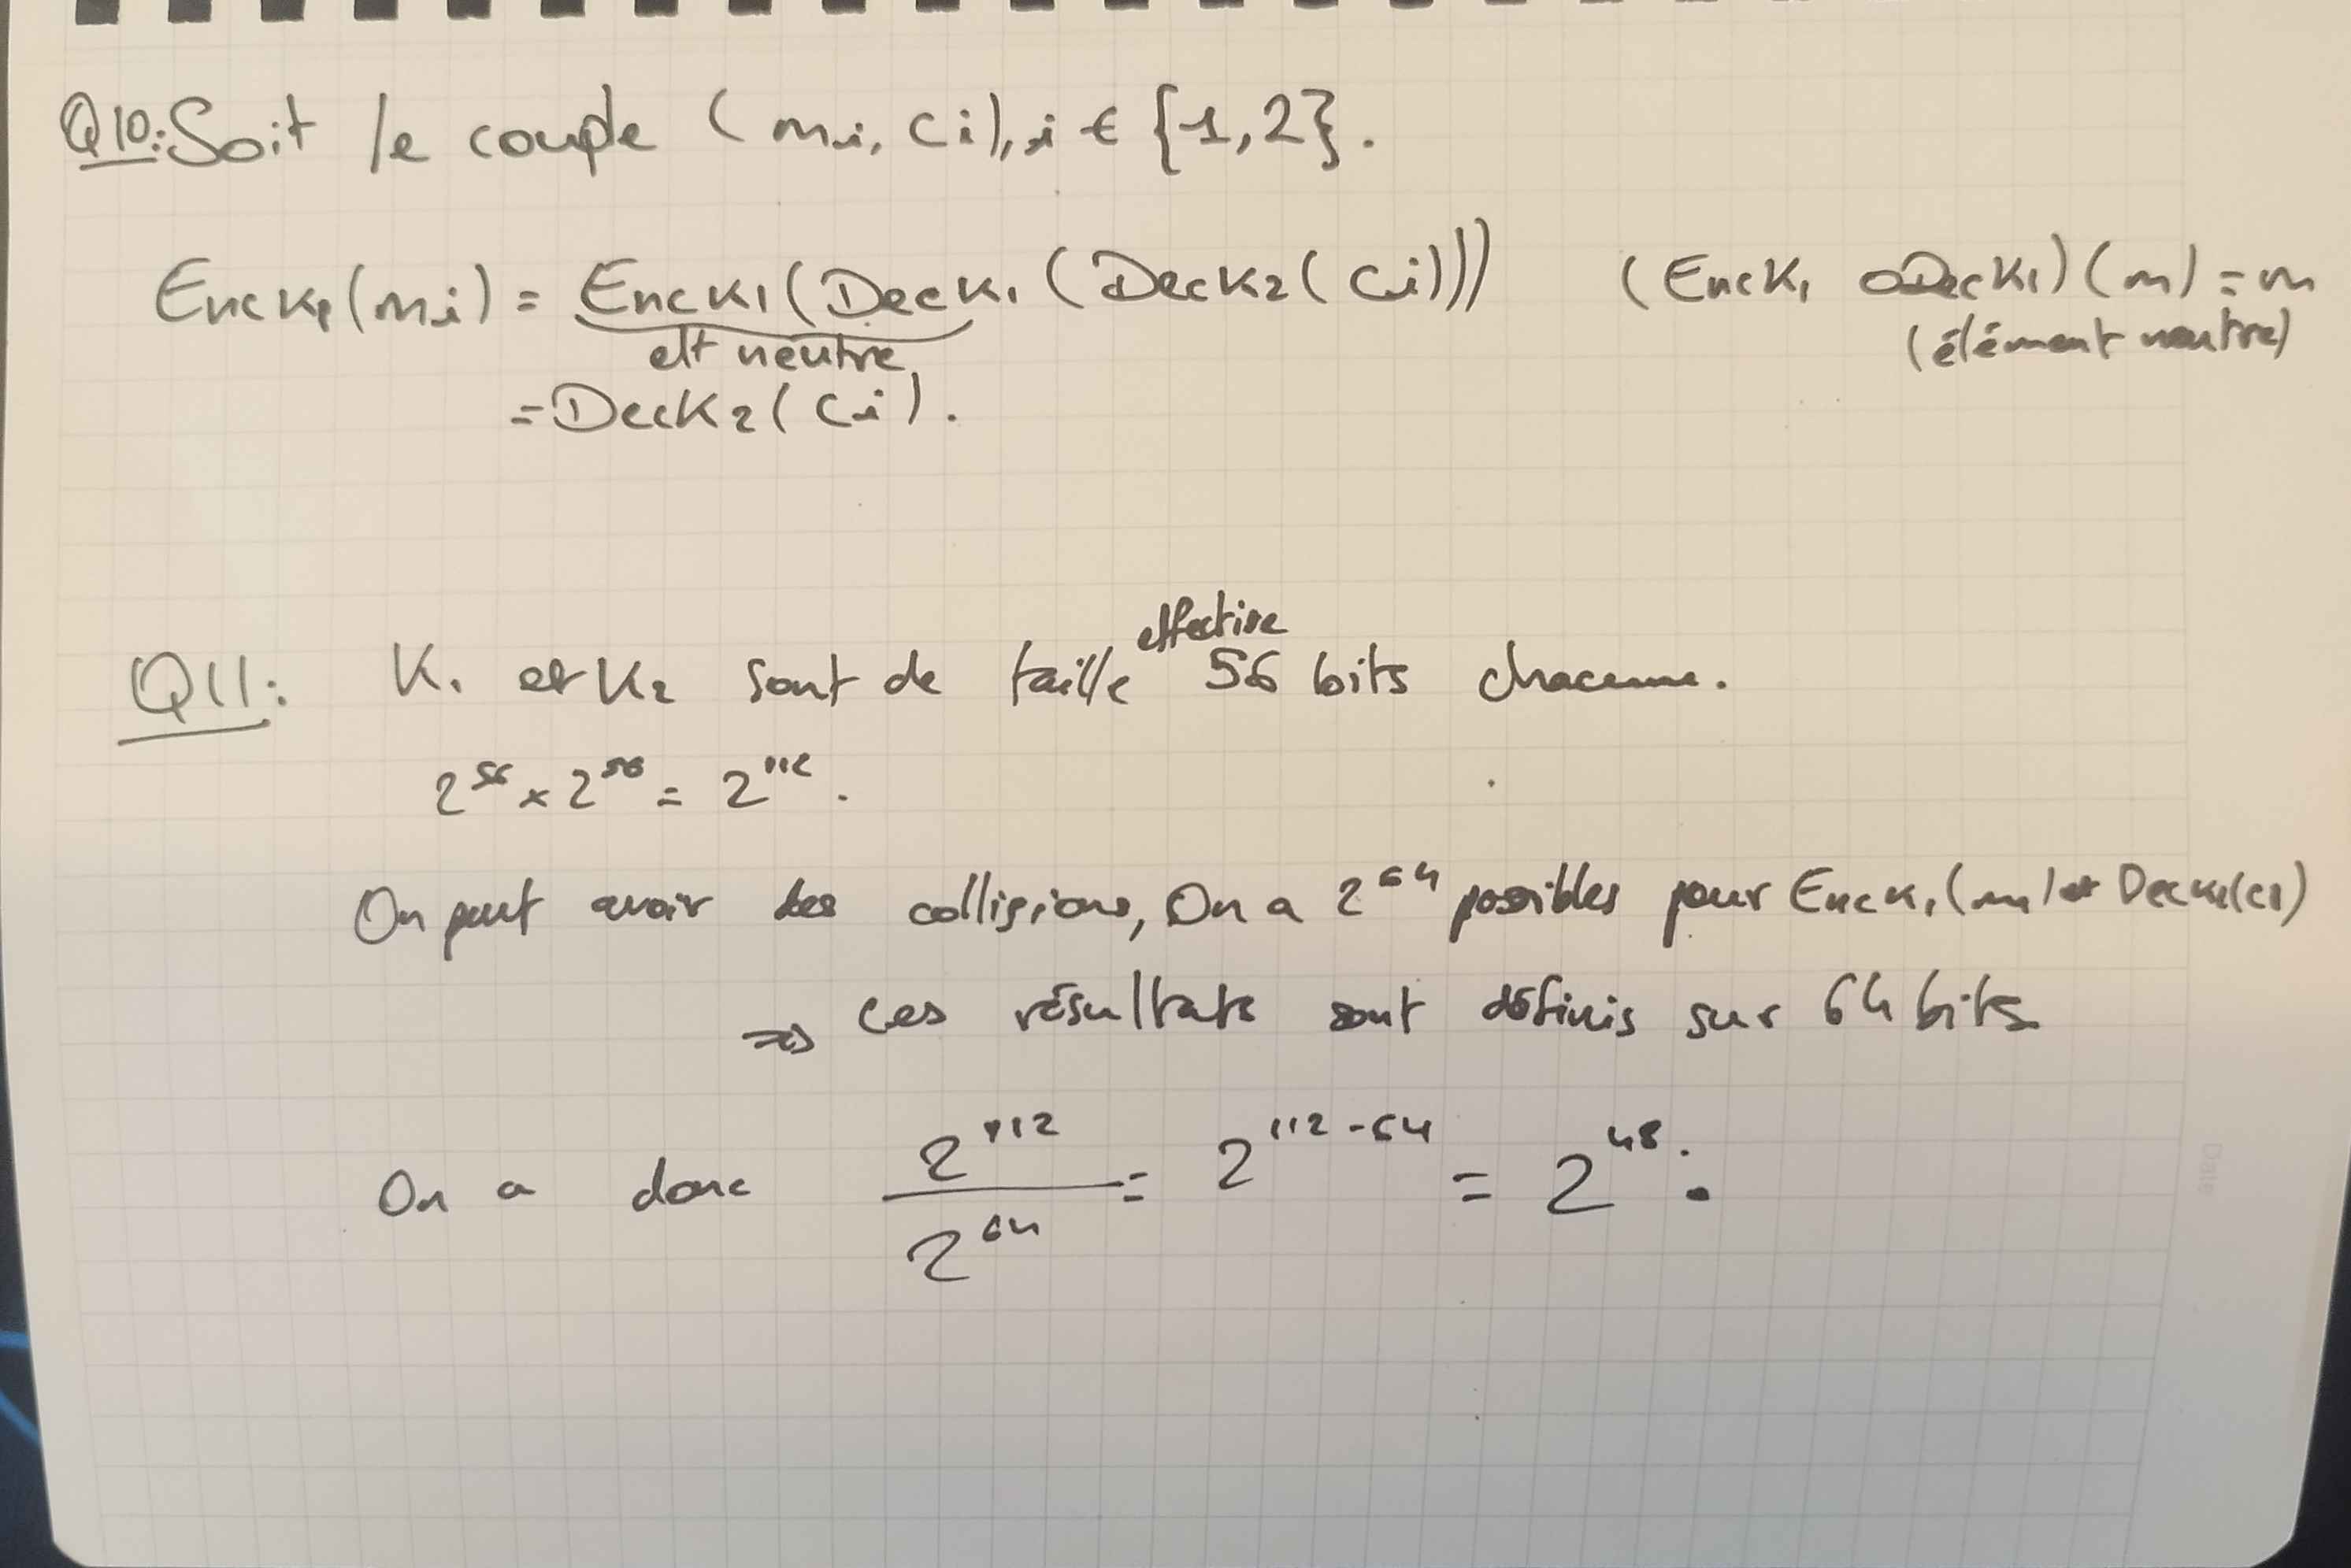 Q10: Soit le couple (mi, Ci), i ∈ {1,2}.
EncK1(mi) = EncK1(DecK1(DecK2(Ci))) (EncK1 o DecK1)(m) = m
elt neutre (élément neutre)
= DecK2(Ci).
effective
Q11: K1 et K2 sont de taille 56 bits chacune.
2^56 × 2^56 = 2^112.
On peut avoir des collisions, On a 2^64 possibles pour EncK1(m1) et DecK2(C1)
=> Ces résultats sont définis sur 64 bits
On a donc 2^112 / 2^64 = 2^(112-64) = 2^48.
Date